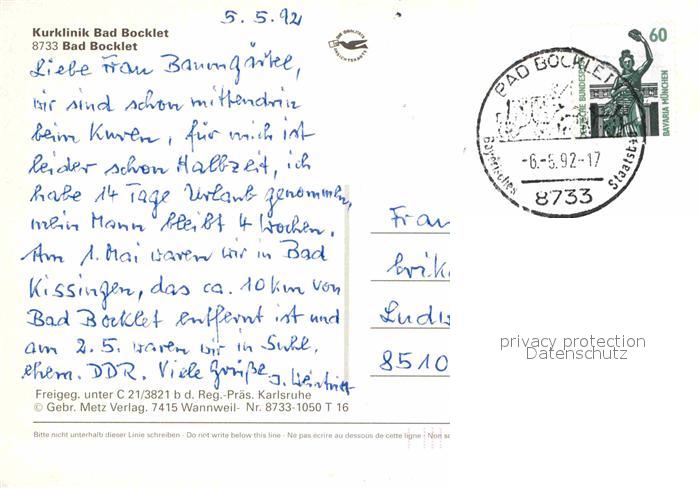 5.5.92
Kurklinik Bad Bocklet
8733 Bad Bocklet
Liebe Frau Baumgärtel,
wir sind schon mittendrin
beim Kuren, für mich ist
leider schon Halbzeit, ich
habe 14 Tage Urlaub genommen,
mein Mann bleibt 4 Wochen.
Am 1. Mai waren wir in Bad
Kissingen, das ca. 10 km von
Bad Bocklet entfernt ist und
am 2.5. waren wir in Suhl,
ehem. DDR. Viele Grüße
Freigeg. unter C 21/3821 b d. Reg.-Präs. Karlsruhe
© Gebr. Metz Verlag. 7415 Wannweil- Nr. 8733-1050 T 16
Bitte nicht unterhalb dieser Linie schreiben - Do not write below this line - Ne pas écrire au dessous de cette ligne - Non s
60
DEUTSCHE BUNDESP
BAVARIA MÜNCHEN
BAD BOCKLET
-6.-5.92-17
Bayerisches Staatsbad
8733
Frau
Erik
Ludw
8510
privacy protection
Datenschutz